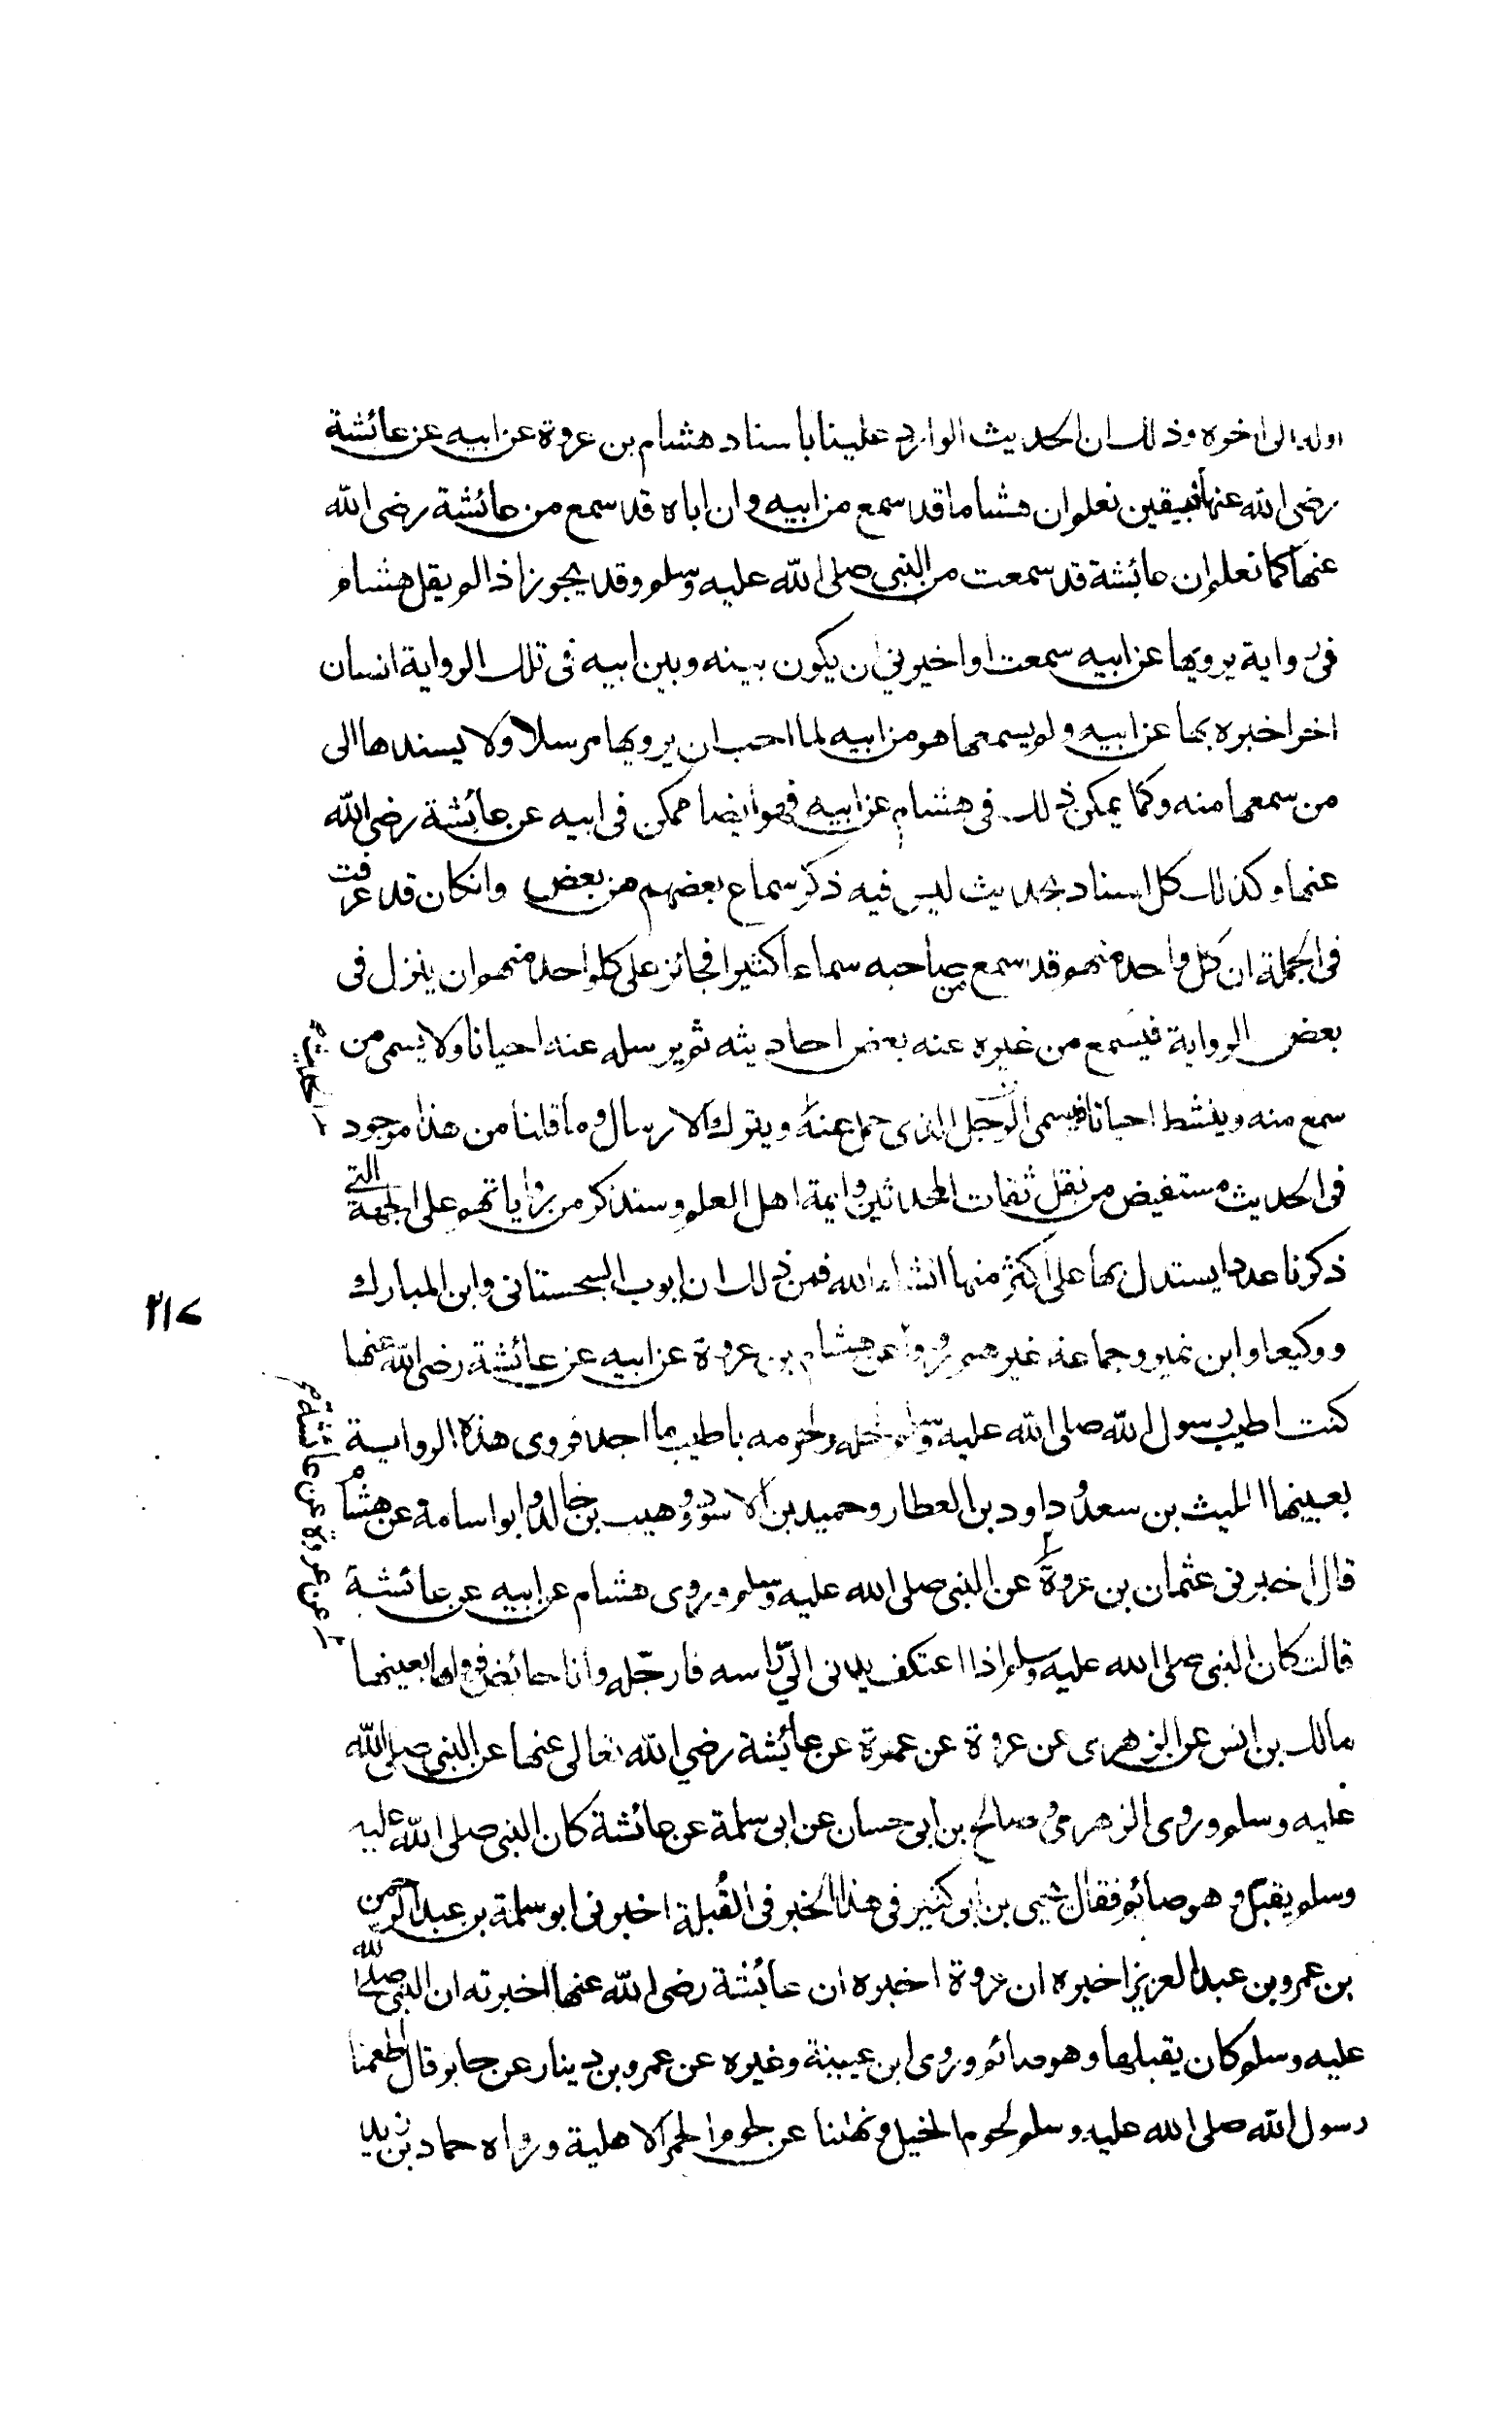 اوله الى اخره وذلك ان الحديث الوارد علينا باسناد هشام بن عروة عن ابيه عن عائشة
رضى الله عنها فبيقين نعلم ان هشاما قد سمع من ابيه وان اباه قد سمع من عائشة رضى الله
عنها كما نعلم ان عائشة قد سمعت من النبى صلى الله عليه وسلم وقد يجوز اذا لم يقل هشام
فى رواية يرويها عن ابيه سمعت او اخبرني ان يكون بينه وبين ابيه فى تلك الرواية انسان
اخر اخبره بها عن ابيه ولم يسمعها هو من ابيه لما احب ان يرويها مرسلا ولا يسندها الى
من سمعها منه وكما يمكن ذلك فى هشام عن ابيه فهو ايضا ممكن فى ابيه عن عائشة رضى الله
عنها وكذلك كل اسناد بحديث ليس فيه ذكر سماع بعضهم من بعض وانكان قد عرفت
فى الجملة ان كل واحد منهم قد سمع من صاحبه سماعا كثيرا فجائز على كل واحد منهم ان ينزل فى
بعض الرواية فيسمع من غيره عنه بعض احاديثه ثم يرسله عنه احيانا ولا يسمى من
سمع منه وينشط احيانا فيسمى الرجل الذى حمل عنه ويترك الارسال وما قلنا من هذا موجود
فى الحديث مستفيض من نقل ثقات المحدثين وايمة اهل العلم وسنذكر من رواياتهم على الجهة التى
ذكرنا عددا يستدل بها على اكثر منها انشاء الله فمن ذلك ان ايوب السجستانى وابن المبارك
ووكيعا وابن نمير وجماعة غيرهم رووا عن هشام بن عروة عن ابيه عن عائشة رضى الله عنها
كنت اطيب رسول الله صلى الله عليه وسلم لحله ولحرمه باطيب ما اجد فروى هذه الرواية
بعينها الليث بن سعد وداود بن العطار وحميد بن الاسود ووهيب بن خالد وابو اسامة عن هشام
قال اخبرنى عثمان بن عروة عن النبى صلى الله عليه وسلم وروى هشام عن ابيه عن عائشة
قالت كان النبى صلى الله عليه وسلم اذا اعتكف يدنى الىّ راسه فارجّله وانا حائض فرواها بعينها
مالك بن انس عن الزهرى عن عروة عن عمرة عن عائشة رضي الله تعالى عنها عن النبى صلى الله
عليه وسلم وروى الزهرى وصالح بن ابى حسان عن ابى سلمة عن عائشة كان النبى صلى الله عليه
وسلم يقبل وهو صائم فقال يحيى بن ابى كثير فى هذا الخبر فى القُبلة اخبرنى ابو سلمة بن عبد الرحمن
بن عمر وبن عبد العزيز اخبره ان عروة اخبره ان عائشة رضى الله عنها اخبرته ان النبى صلى الله
عليه وسلم كان يقبلها وهو صائم وروى ابن عيينة وغيره عن عمرو بن دينار عن جابر قال اطعمنا
رسول الله صلى الله عليه وسلم لحوم الخيل ونهانا عن لحوم الحمر الاهلية ورواه حماد بن زيد
الحديث
عن عروة عن عائشة
٢١٧